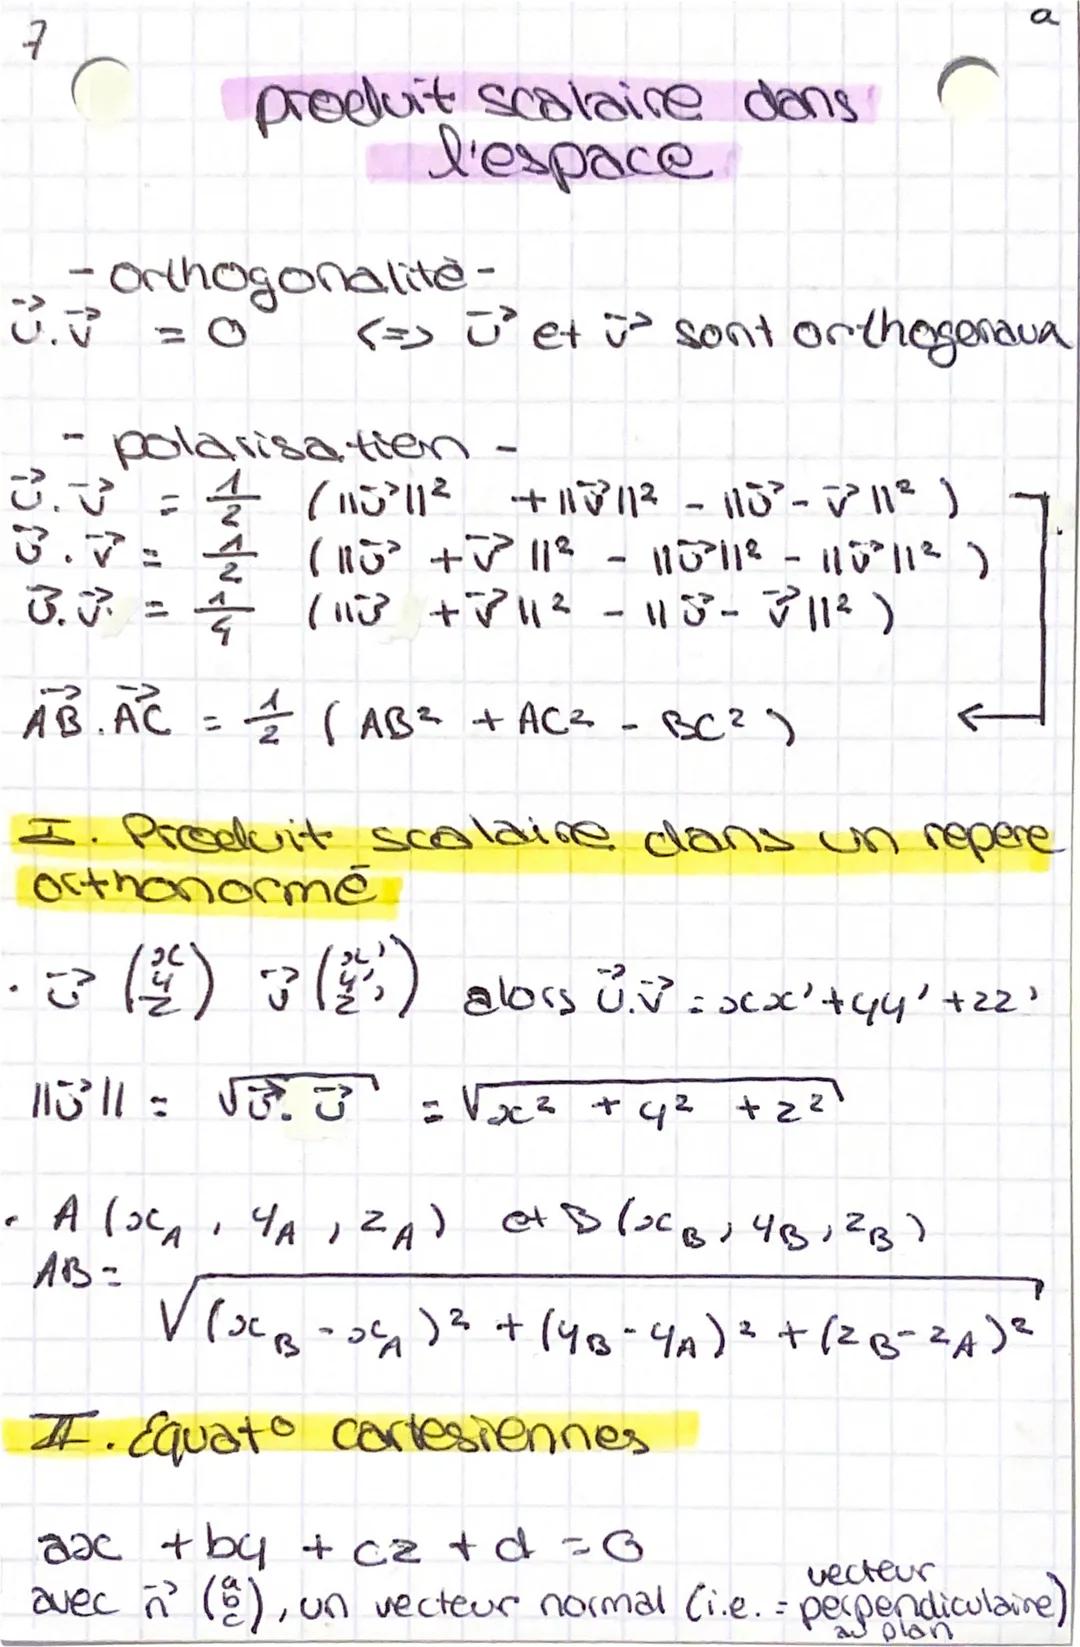 7
a
produit scalaire dans
l'espace
- orthogonalité -
u⃗.v⃗ = 0 <=> u⃗ et v⃗ sont orthogonaux
- polarisation -
u⃗.v⃗ = 1/2 (||u⃗||² + ||v⃗||² - ||u⃗ - v⃗||²)
u⃗.v⃗ = 1/2 (||u⃗ + v⃗||² - ||u⃗||² - ||v⃗||²)
u⃗.v⃗ = 1/4 (||u⃗ + v⃗||² - ||u⃗ - v⃗||²)
AB⃗.AC⃗ = 1/2 (AB² + AC² - BC²) ←
I. Produit scalaire dans un repere
orthonormé
· u⃗ (x y z) v⃗ (x' y' z') alors u⃗.v⃗ = xx' + yy' + zz'
||u⃗|| = √(u⃗.u⃗) = √(x² + y² + z²)
· A (x_A, y_A, z_A) et B (x_B, y_B, z_B)
AB =
√((x_B - x_A)² + (y_B - y_A)² + (z_B - z_A)²)
II. Equat° cartesiennes
ax + by + cz + d = 0
avec n⃗ (a b c), un vecteur normal (i.e. = vecteur perpendiculaire)
au plan